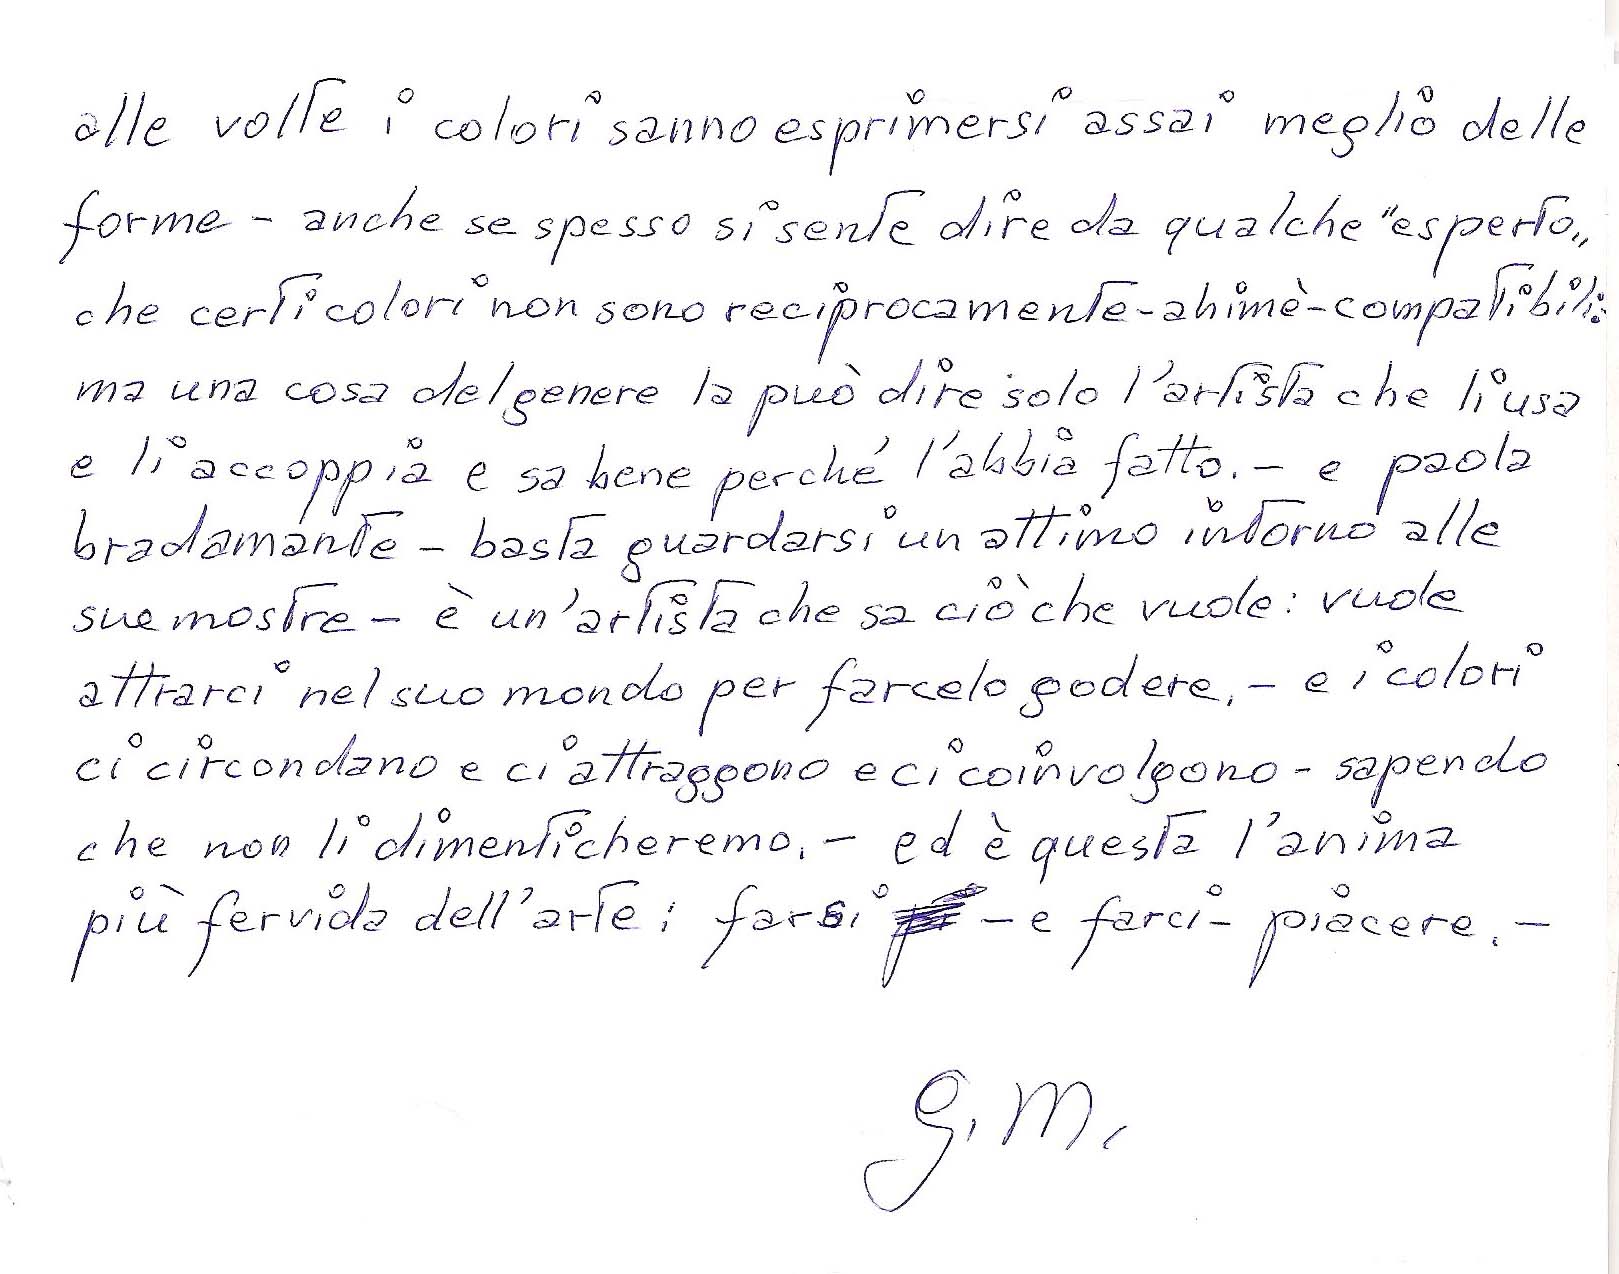 alle volte i colori sanno esprimersi assai meglio delle
forme - anche se spesso si sente dire da qualche "esperto„
che certi colori non sono reciprocamente - ahimè - compatibili:
ma una cosa del genere la può dire solo l'artista che li usa
e li accoppia e sa bene perché l'abbia fatto. - e paola
bradamante - basta guardarsi un attimo intorno alle
sue mostre - è un'artista che sa ciò che vuole: vuole
attrarci nel suo mondo per farcelo godere. - e i colori
ci circondano e ci attraggono e ci coinvolgono - sapendo
che non li dimenticheremo. - ed è questa l'anima
più fervida dell'arte: farsi - e farci - piacere. -
G. M.